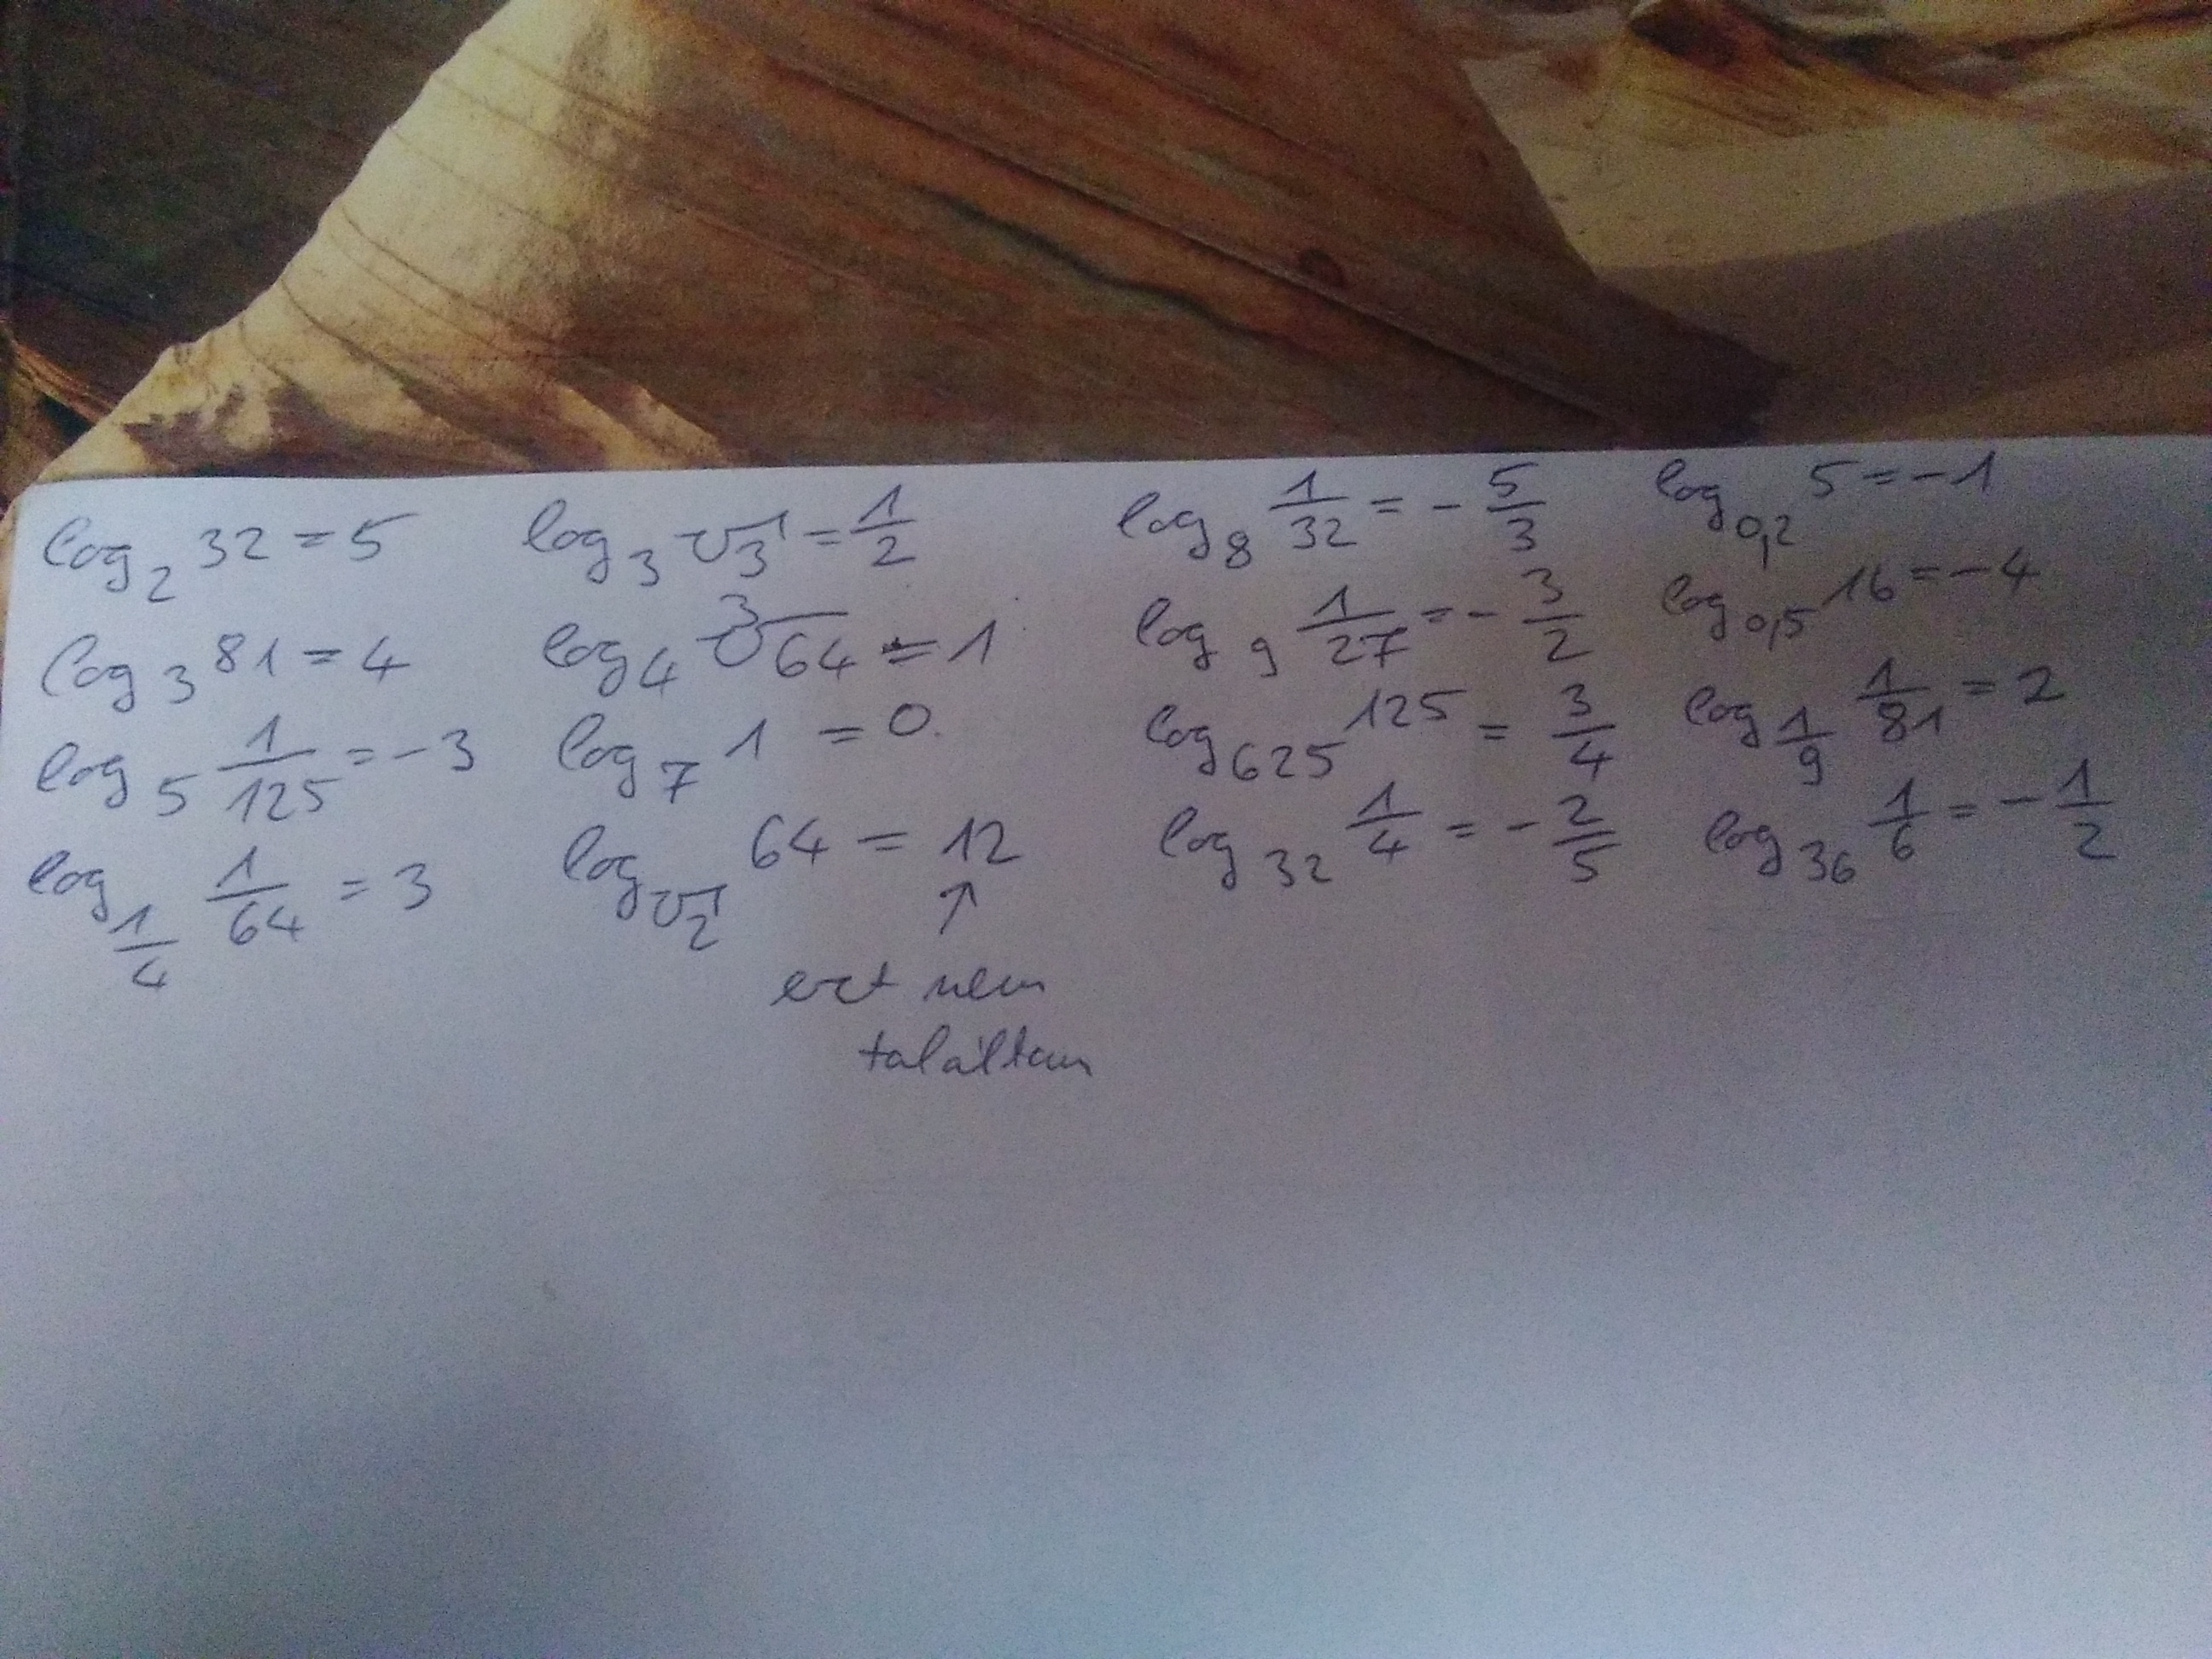 log₂ 32 = 5
log₃ 81 = 4
log₅ 1/125 = -3
log_(1/4) 1/64 = 3
log₃ √3 = 1/2
log₄ ∛64 = 1
log₇ 1 = 0
log_(√2) 64 = 12
↑
ezt nem
találtam
log₈ 1/32 = - 5/3
log₉ 1/27 = - 3/2
log₆₂₅ 125 = 3/4
log₃₂ 1/4 = - 2/5
log_(0,2) 5 = -1
log_(0,5) 16 = -4
log_(1/9) 1/81 = 2
log₃₆ 1/6 = - 1/2